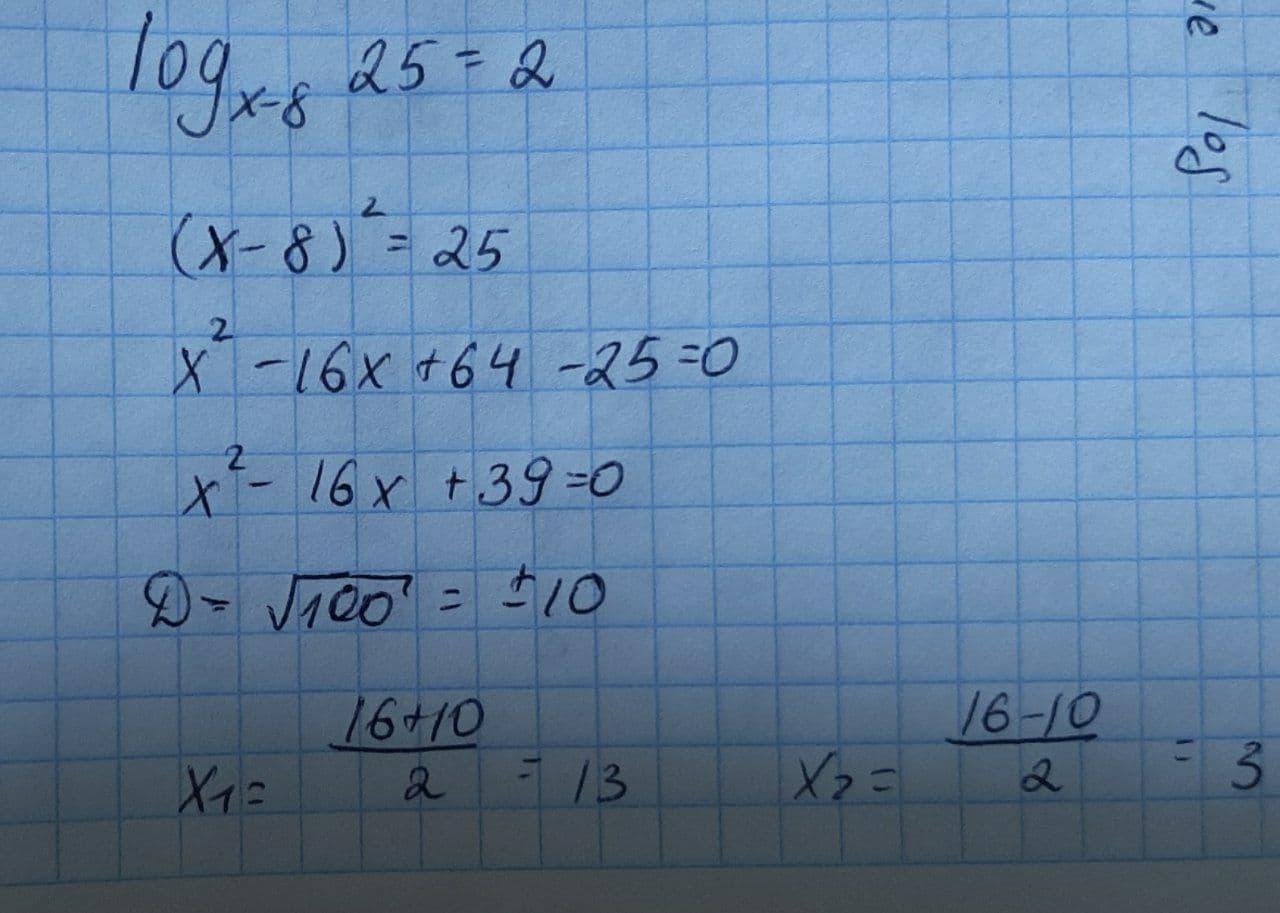 log_{x-8} 25 = 2
(x-8)² = 25
x² -16x +64 -25=0
x² - 16x +39=0
D = √100 = ±10
x₁ = (16+10)/2 = 13    x₂ = (16-10)/2 = 3
log